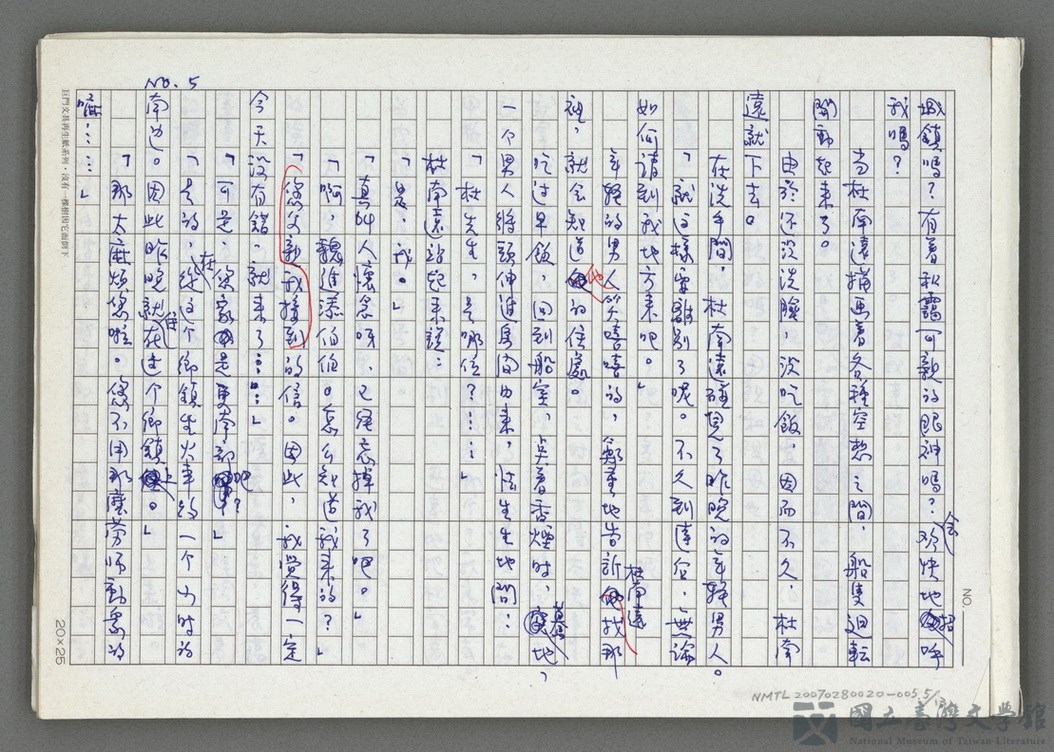 城鎮嗎？有着和靄可親的眼神嗎？会欢快地招呼
我嗎？
當杜南遠描画着各種空想之間，船隻迴転
開動起来了。
由於还沒洗臉，沒吃飯，因而不久，杜南
遠就下去。
在洗手間，杜南遠碰見了昨晚的年軽男人。
「就这樣要離別了呢。不久到達台，無論
如何請到我地方来吧。」
年軽的男人笑嘻嘻的，鄭重地告訴杜南遠找那
裡，就会知道他的住處。
吃过早飯，回到船室，点着香煙時，驀地，
一个男人将頭伸進房间内来，怯生生地問：
「杜先生，是哪位？……」
杜南遠站起来說：
「是，我。」
「真叫人懷念呀，已経忘掉我了吧。」
「啊，魏進添伯伯。怎么知道我来的？」
「您父親我接到的信。因此，我覺得一定
今天沒有錯，就来了……」
「可是，您家不是更南部地？」
「是的，在從这个鄉鎮坐火車約一个小时的
南边。因此昨晚就住在这个鄉鎮上。」
「那太麻煩您啦。您不用那麼劳师動衆的
嘛……」
NO. 5
NO.
20×25
巨門文具再生紙系列·沒有一棵樹因它而倒下
NMTL20070280020-005.5/
國立臺灣文學館
National Museum of Taiwan Literature